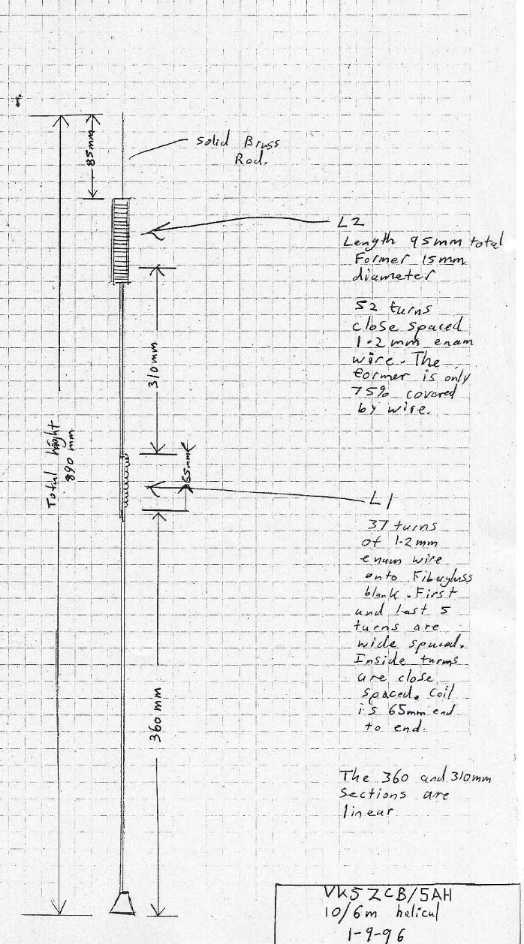 85mm
Solid Brass
Rod.
L2
Length 95mm total
Former 15mm
diameter
52 turns
close spaced
1.2mm enam
wire. The
former is only
75% covered
by wire.
310mm
Total hight
890 mm
65mm
L1
37 turns
of 1.2mm
enam wire
onto Fibuglass
blank. First
and last 5
turns are
wide spaced.
Inside turns
are close
spaced. Coil
is 65mm end
to end.
360mm
The 360 and 310mm
Sections are
linear
VK5ZCB/5AH
10/6m helical
1-9-96